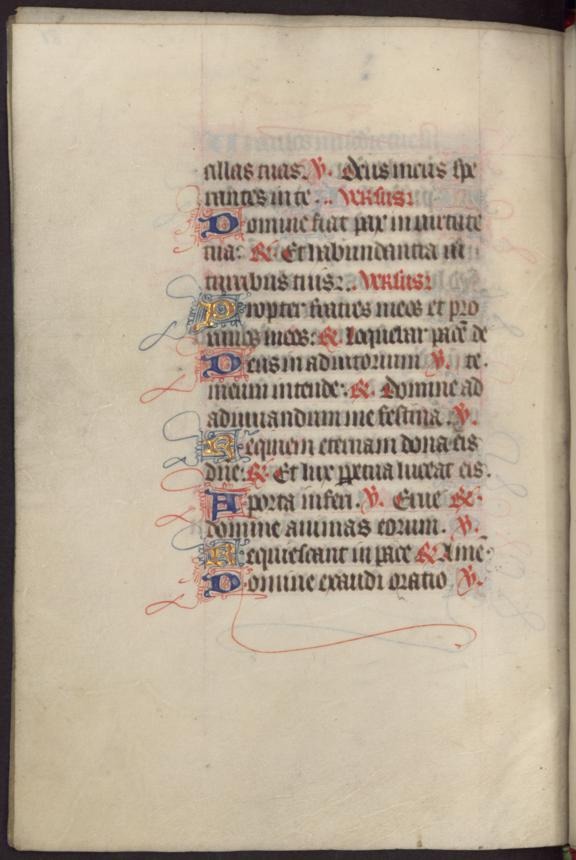 cillas tuas. v. Deus meus spe
rantes in te ... versus:
Domine fiat pax in uirtute
tua: R. Et habundantia in
turribus tuis: .. versus:
Propter fratres meos et pro
ximos meos: R. loquebar pacē de
Deus in adiutorium v. te.
meum intende: R. Domine ad
adiuuandum me festina. v.
Requiem eternam dona eis
dn̄e: R. Et lux ꝑpetua luceat eis.
A porta inferi. v. Erue R.
domine animas eorum. v.
Requiescant in pace R. Amē.
Domine exaudi oratio v.